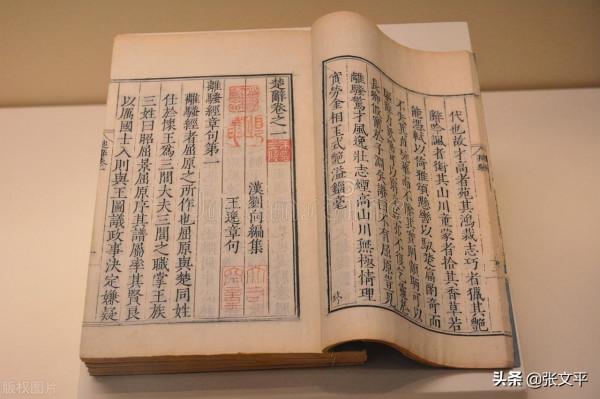 代也故才高者菀其鴻裁志巧者獵其艷
辭吟諷者銜其山川童蒙者拾其香草若
能憑軾以倚雅頌懸轡以馭楚篇酌奇而
不失其真翫華而不墜其實則顧盼可以
離騷驚才風逸壯志煙高山川無極情理
實勞金相玉式艷溢錙毫
楚辭卷之一
漢劉向編集
王逸章句
離騷經章句第一
離騷經者屈原之所作也屈原與楚同姓
仕於懷王為三閭大夫三閭之職掌王族
三姓曰昭屈景屈原序其譜屬率其賢良
以厲國士入則與王圖議政事決定嫌疑
版权图片
头条 @张文平